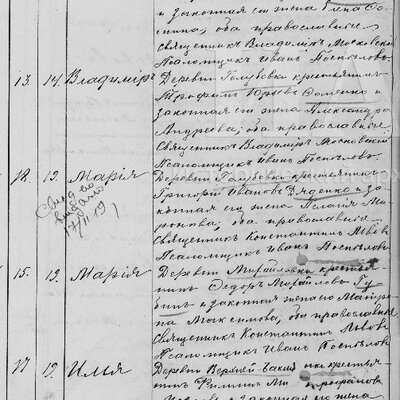 и законная его жена Елена
оба православные
Священникъ Владимiръ Московскiй
Псаломщикъ Иванъ Поспѣловъ
13. 14. Владимiръ Деревни Голубовки крестьянинъ
Трофимъ Юрьевъ Фоменко и
законная его жена Александра
Андреева, оба православные
Священникъ Владимiръ Московскiй
Псаломщикъ Иванъ Поспѣловъ
12. 12. Марiя Деревни Голубовки крестьянинъ
Григорiй Ивановъ Дяденко и за-
конная его жена Пелагiя Ми-
роновна, оба православные
Священникъ Константинъ Львовъ
Псаломщикъ Иванъ Поспѣловъ
15. 12. Марiя Деревни Михайловки кресть-
нинъ Ѳедоръ Михайловъ Гу-
бинъ и законная жена его Матре-
на Максимова, оба православные
Священникъ Константинъ Львовъ
Псаломщикъ Иванъ Поспѣловъ
17 12. Илья Деревни кресть-
нинъ Филиппъ
законная его жена